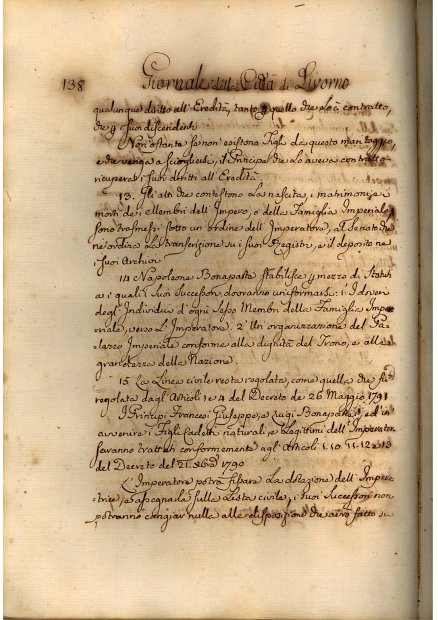 138 Giornale della Città di Livorno
qualunque diritto all' Eredità, tanto p quello che Lo à contratto,
che p suoi discendenti
Non ostante se non esistono Figli da questo mantaggio,
e che venga a sciogliersi, il Principe che Lo aveva contratto
ricupera i suoi diritti all' Eredità.
13. Gli atti che contestono La nascita, i matrimonj, e i
morti de i Membri dell' Impero, o della Famiglia Imperiale
sono trasmessi sotto un' ordine dell' Imperatore, al Senato che
ne ordina La transcrizione su i suoi Registri, e il deposito ne
i suoi Archivi
14 Napoleone Bonaparte stabilisce p mezzo di Statuti
a i quali i suoi Successori dovranno uniformarsi: 1.° I doveri
degl' Individui d' ogni Sesso Membri della Famiglia Impe
riale, verso L' Imperatore. 2.° Un' organizzazione del Pa-
lazzo Imperiale conforme alla dignità del Trono, e alla
grandezza della Nazione.
15. La Lista civile resta regolata, come quella che fù
regolata dagl' Articoli 1 e 4 del Decreto de 26 Maggio 1791
I Principi Francesi Giuseppe, e Luigi Bonaparte, ed in
avvenire i Figli Cadetti naturali, e Legittimi dell' Imperator
saranno trattati conformemente agl' Articoli 1. 10. 11. 12 e 13
del Decreto del 21. Xbre 1790
L' Imperatore potrà fissare La dotazione dell' Impera
trice, e assegnarla sulla Lista civile, i suoi Successori non
potranno cangiar nulla alle disposizioni che avrà fatto su